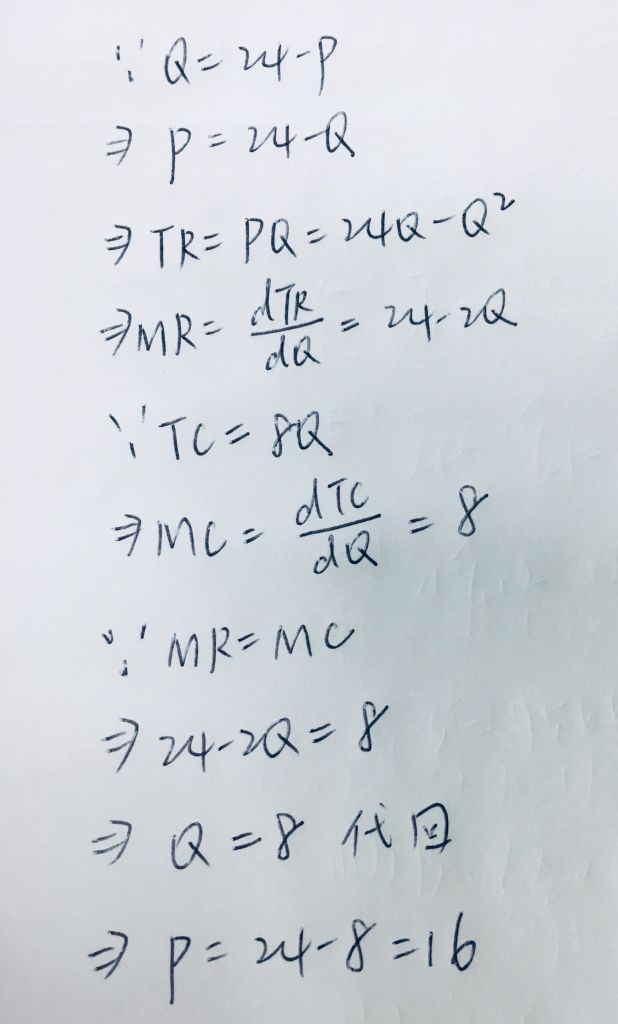 ∵ Q = 24-P
⇒ P = 24-Q
⇒ TR = PQ = 24Q-Q²
⇒ MR = dTR/dQ = 24-2Q
∵ TC = 8Q
⇒ MC = dTC/dQ = 8
∵ MR = MC
⇒ 24-2Q = 8
⇒ Q = 8 代回
⇒ P = 24-8 = 16